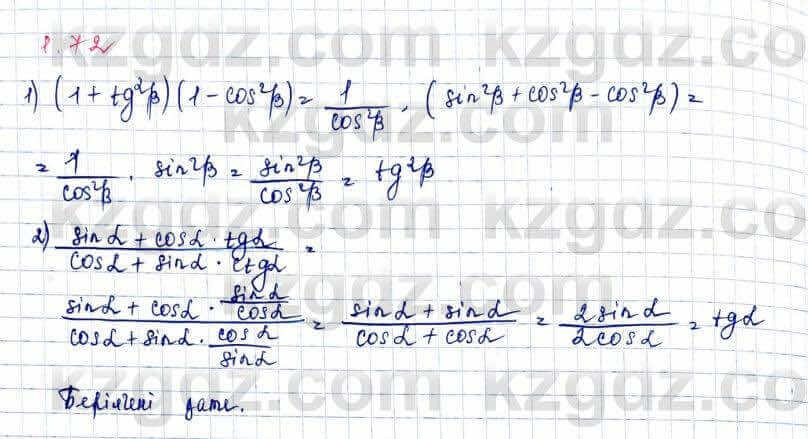 1.72
1) (1 + tg²β)(1 - cos²β) = 1/cos²β · (sin²β + cos²β - cos²β) =
= 1/cos²β · sin²β = sin²β/cos²β = tg²β
2) (sinα + cosα · tgα)/(cosα + sinα · ctgα) =
(sinα + cosα · sinα/cosα)/(cosα + sinα · cosα/sinα) = (sinα + sinα)/(cosα + cosα) = 2sinα/2cosα = tgα
Берілгені дәлел.
kzgdz.com kzgdz.com
kzgdz.com
kzgdz.com kzgdz.com
kzgdz.com
kzgdz.com kzgdz.com